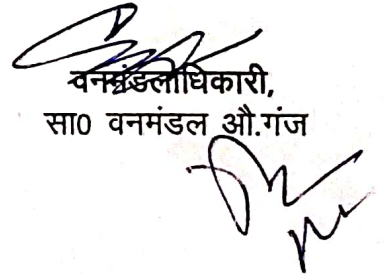 वनमंडलाधिकारी,
सा0 वनमंडल औ.गंज